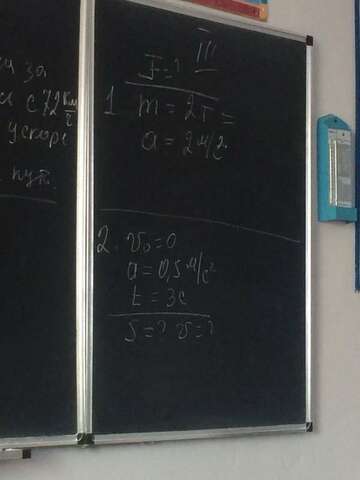 за
с 72 км/с
ускоре
пут.
III
F=?
1 m = 2т =
a = 2 м/с²
2. v₀=0
a=0,5 м/с²
t = 3с
S=? v=?